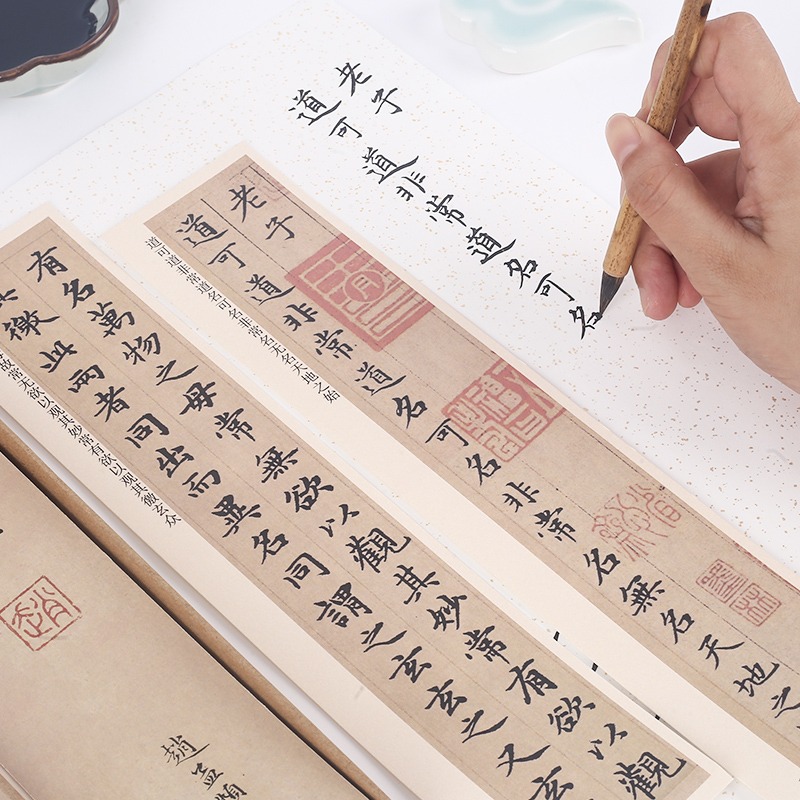 老子
道可道非常道名可名
老子
道可道非常道名可名非常名無名天地之
道可道非常道名可名非常名无名天地之始
有名萬物之母常無欲以觀其妙常有欲以觀
其徼此兩者同出而異名同謂之玄玄之又玄
故常无欲以观其妙常有欲以观其徼玄众
趙孟頫